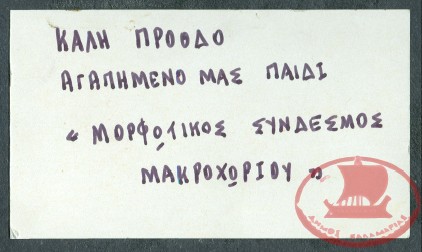 ΚΑΛΗ ΠΡΟΟΔΟ
ΑΓΑΠΗΜΕΝΟ ΜΑΣ ΠΑΙΔΙ
« ΜΟΡΦΩΤΙΚΟΣ ΣΥΝΔΕΣΜΟΣ
ΜΑΚΡΟΧΩΡΙΟΥ »
ΔΗΜΟΣ ΚΑΛΑΜΑΡΙΑΣ